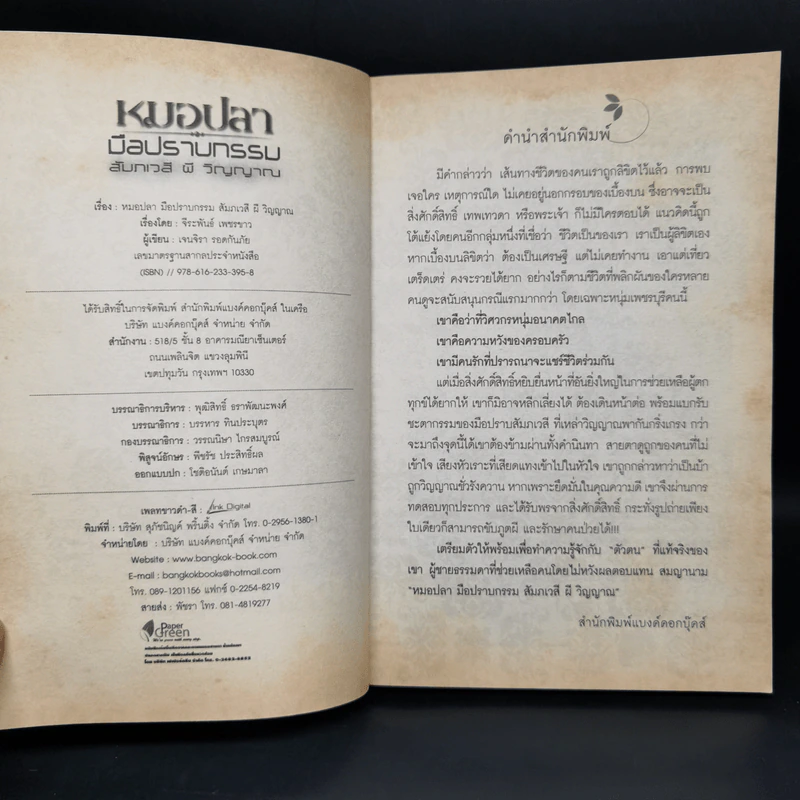 หมอปลา
มือปราบกรรม
สัมภเวสี ผี วิญญาณ
เรื่อง : หมอปลา มือปราบกรรม สัมภเวสี ผี วิญญาณ
เรื่องโดย : จีระพันธ์ เพชรขาว
ผู้เขียน : เจนจิรา รอดกันภัย
เลขมาตรฐานสากลประจำหนังสือ
(ISBN) // 978-616-233-395-8
ได้รับสิทธิ์ในการจัดพิมพ์ สำนักพิมพ์แบงค์คอกบุ๊คส์ ในเครือ
บริษัท แบงค์คอกบุ๊คส์ จำหน่าย จำกัด
สำนักงาน : 518/5 ชั้น 8 อาคารมณียาเซ็นเตอร์
ถนนเพลินจิต แขวงลุมพินี
เขตปทุมวัน กรุงเทพฯ 10330
บรรณาธิการบริหาร : พุฒิสิทธิ์ ธราพัฒนะพงศ์
บรรณาธิการ : บรรหาร ทินประบุตร
กองบรรณาธิการ : วรรณนิษา ไกรสมบูรณ์
พิสูจน์อักษร : พีชรัช ประสิทธิ์ผล
ออกแบบปก : โชติอนันต์ เกษมาลา
เพลทขาวดำ-สี : Link Digital
พิมพ์ที่ : บริษัท สุภัชนิญค์ พริ้นติ้ง จำกัด โทร. 0-2956-1380-1
จำหน่ายโดย : บริษัท แบงค์คอกบุ๊คส์ จำหน่าย จำกัด
Website : www.bangkok-book.com
E-mail : bangkokbooks@hotmail.com
โทร. 089-1201156 แฟกซ์ 0-2254-8219
สายส่ง : พัชรา โทร. 081-4819277
Paper
Green
คำนำสำนักพิมพ์
มีคำกล่าวว่า เส้นทางชีวิตของคนเราถูกลิขิตไว้แล้ว การพบ
เจอใคร เหตุการณ์ใด ไม่เคยอยู่นอกกรอบของเบื้องบน ซึ่งอาจจะเป็น
สิ่งศักดิ์สิทธิ์ เทพเทวดา หรือพระเจ้า ก็ไม่มีใครตอบได้ แนวคิดนี้ถูก
โต้แย้งโดยคนอีกกลุ่มหนึ่งที่เชื่อว่า ชีวิตเป็นของเรา เราเป็นผู้ลิขิตเอง
หากเบื้องบนลิขิตว่า ต้องเป็นเศรษฐี แต่ไม่เคยทำงาน เอาแต่เที่ยว
เตร็ดเตร่ คงจะรวยได้ยาก อย่างไรก็ตามชีวิตที่พลิกผันของใครหลาย
คนดูจะสนับสนุนกรณีแรกมากกว่า โดยเฉพาะหนุ่มเพชรบุรีคนนี้
เขาคือว่าที่วิศวกรหนุ่มอนาคตไกล
เขาคือความหวังของครอบครัว
เขามีคนรักที่ปรารถนาจะแชร์ชีวิตร่วมกัน
แต่เมื่อสิ่งศักดิ์สิทธิ์หยิบยื่นหน้าที่อันยิ่งใหญ่ในการช่วยเหลือผู้ตก
ทุกข์ได้ยากให้ เขาก็มิอาจหลีกเลี่ยงได้ ต้องเดินหน้าต่อ พร้อมแบกรับ
ชะตากรรมของมือปราบสัมภเวสี ที่เหล่าวิญญาณพากันกริ่งเกรง กว่า
จะมาถึงจุดนี้ได้เขาต้องข้ามผ่านทั้งคำนินทา สายตาดูถูกของคนที่ไม่
เข้าใจ เสียงหัวเราะที่เสียดแทงเข้าไปในหัวใจ เขาถูกกล่าวหาว่าเป็นบ้า
ถูกวิญญาณชั่วรังควาน หากเพราะยึดมั่นในคุณความดี เขาจึงผ่านการ
ทดสอบทุกประการ และได้รับพรจากสิ่งศักดิ์สิทธิ์ กระทั่งรูปถ่ายเพียง
ใบเดียวก็สามารถขับภูตผี และรักษาคนป่วยได้!!!
เตรียมตัวให้พร้อมเพื่อทำความรู้จักกับ "ตัวตน" ที่แท้จริงของ
เขา ผู้ชายธรรมดาที่ช่วยเหลือคนโดยไม่หวังผลตอบแทน สมญานาม
"หมอปลา มือปราบกรรม สัมภเวสี ผี วิญญาณ"
สำนักพิมพ์แบงค์คอกบุ๊คส์